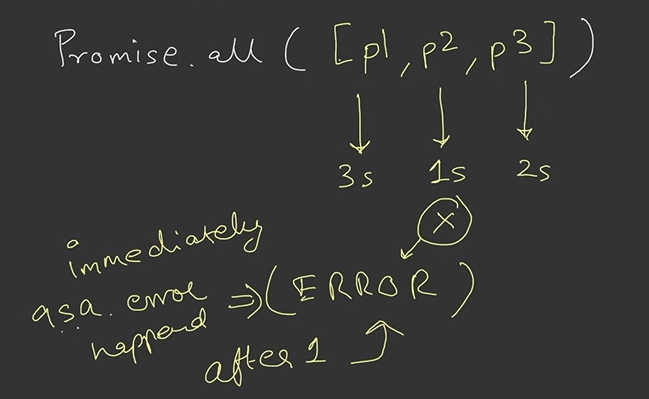 Promise.all ( [p1, p2, p3] )
3s 1s 2s
X
immediately
a.s.a. error
happend
=> (ERROR)
after 1